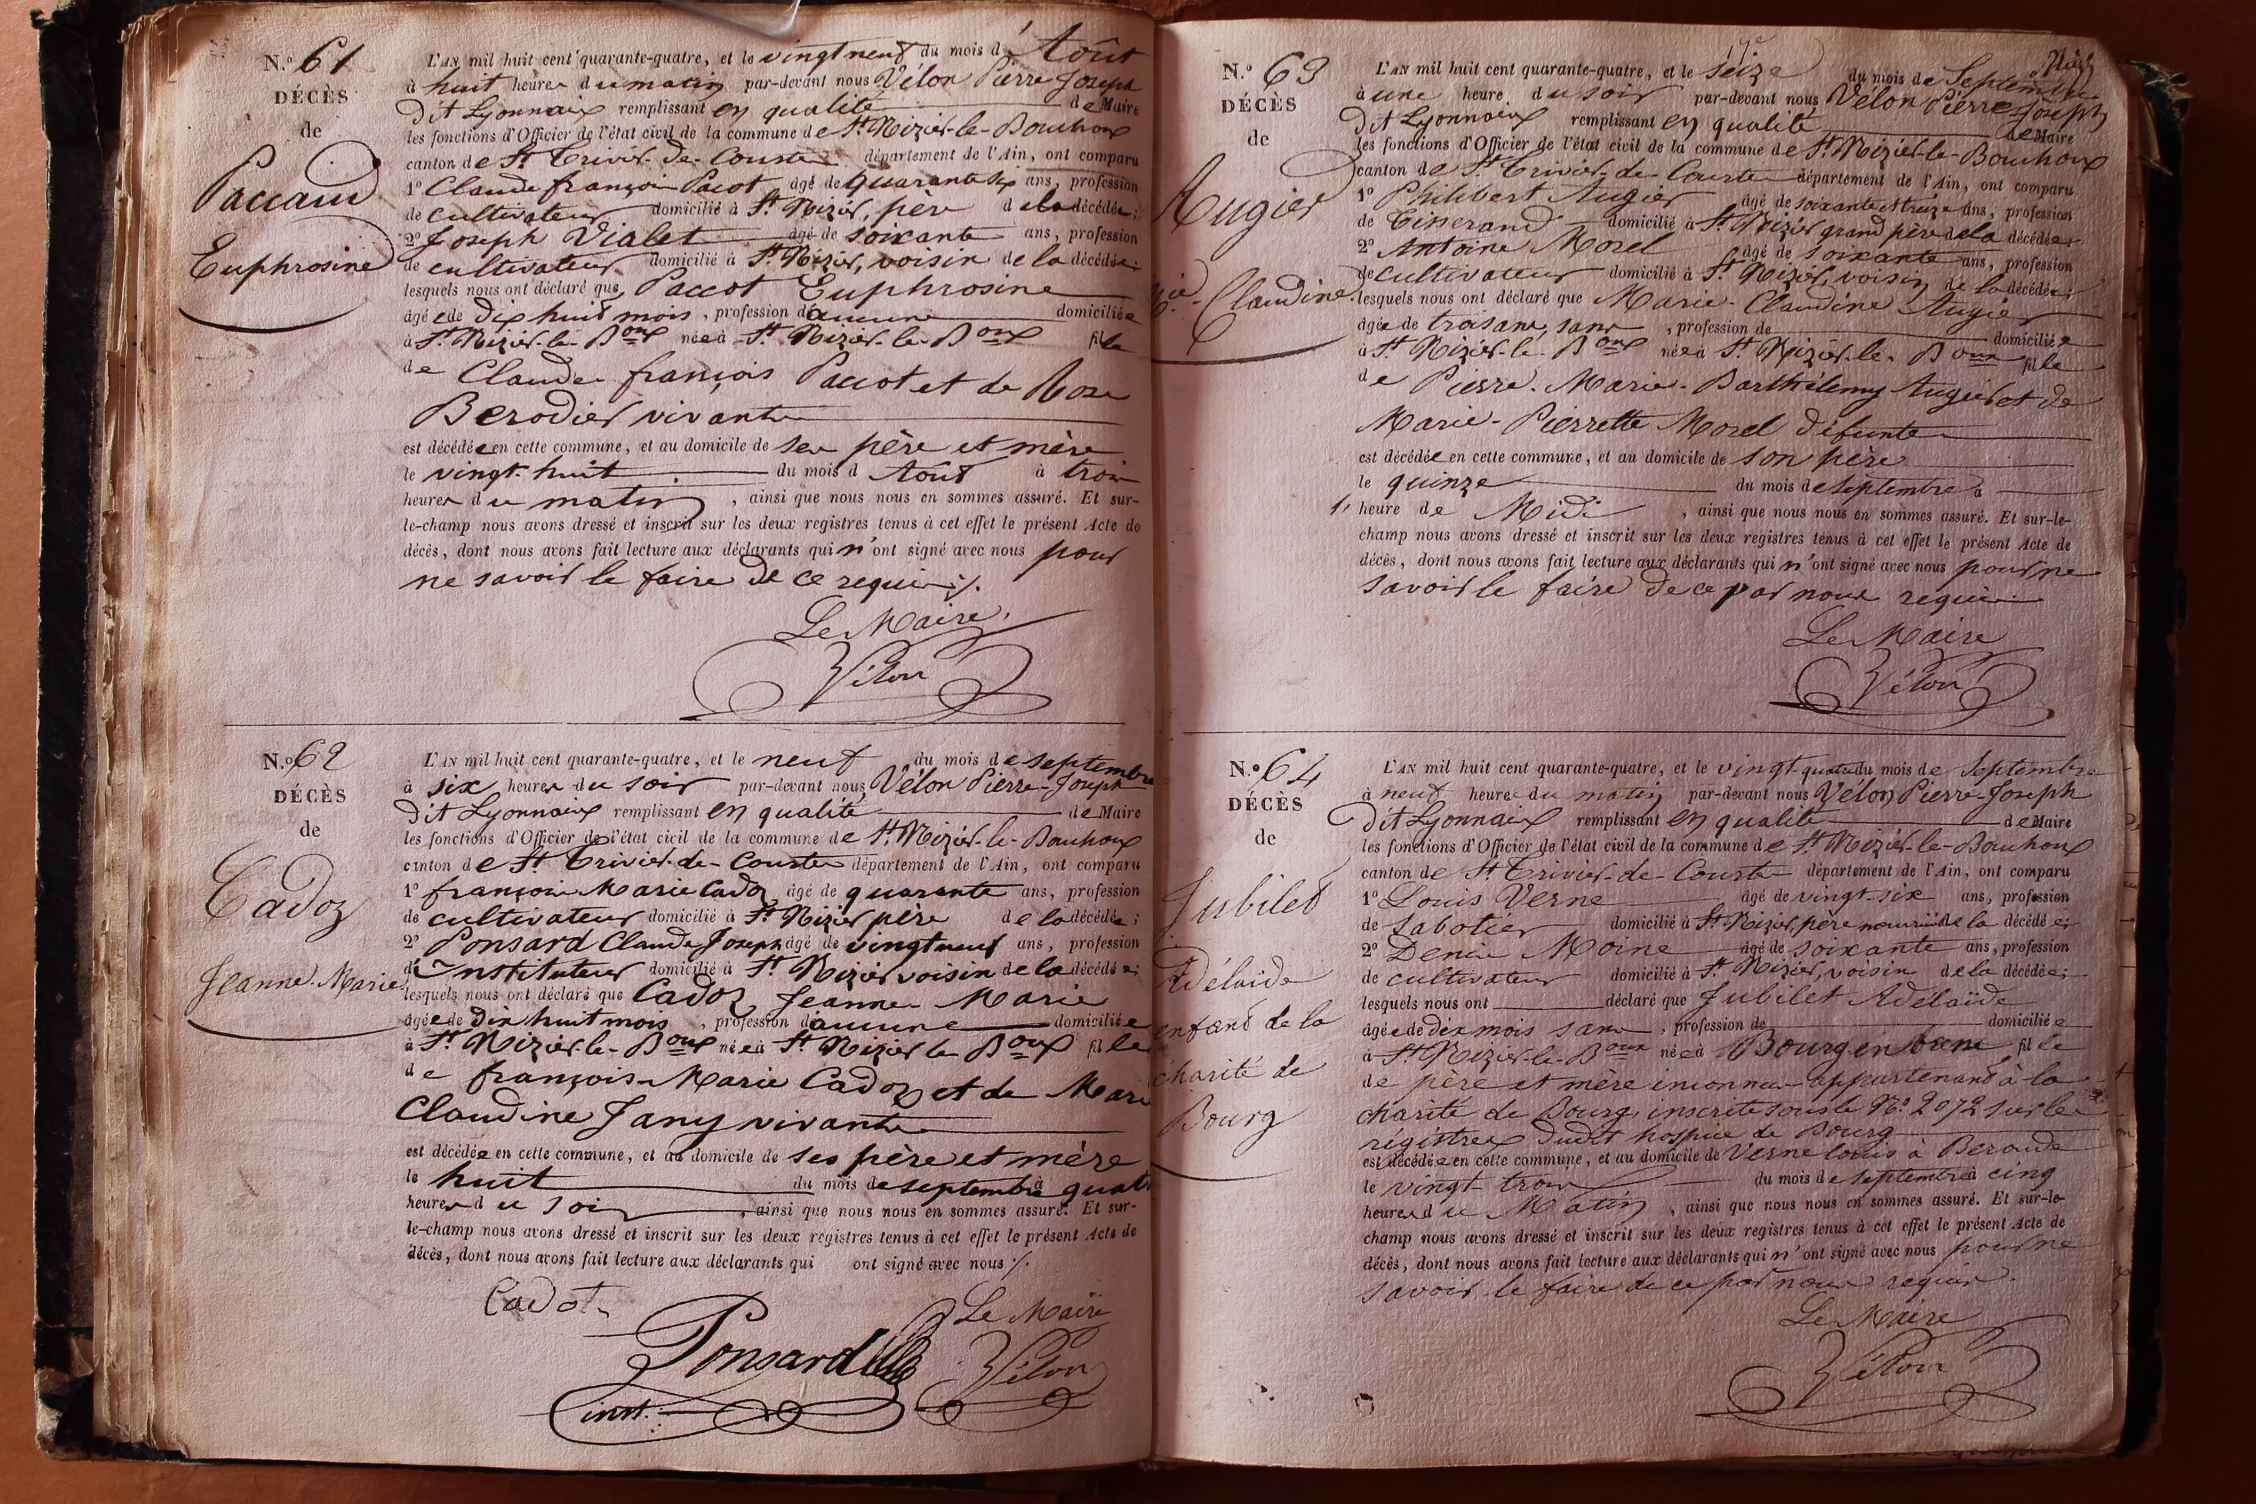 N.° 61
DÉCÈS
de
Paccaud
Euphrosine
L'AN mil huit cent quarante-quatre, et le vingt neuf du mois d'Août
à huit heures du matin par-devant nous Vélon Pierre Joseph
dit Lyonnais remplissant en qualité de Maire
les fonctions d'Officier de l'état civil de la commune de St. Nizier-le-Bouchoux
canton de St. Trivier-de-Courtes département de l'Ain, ont comparu
1° Claude françois Pacot âgé de quarante six ans, profession
de cultivateur domicilié à St. Nizier, père de la décédée;
2° Joseph Vialet âgé de soixante ans, profession
de cultivateur domicilié à St. Nizier, voisin de la décédée;
lesquels nous ont déclaré que Paccot Euphrosine
âgée de dix huit mois, profession d'aucune domiciliée
à St. Nizier-le-Boux née à St. Nizier-le-Boux fille
de Claude françois Paccot et de Rose
Berodier vivants
est décédée en cette commune, et au domicile de ses père et mère
le vingt-huit du mois d'Août à trois
heures du matin, ainsi que nous nous en sommes assuré. Et sur-
le-champ nous avons dressé et inscrit sur les deux registres tenus à cet effet le présent Acte de
décès, dont nous avons fait lecture aux déclarants qui n'ont signé avec nous pour
ne savoir le faire de ce requis ./.
Le Maire,
Vélon
N.° 62
DÉCÈS
de
Cadoz
Jeanne-Marie
L'AN mil huit cent quarante-quatre, et le neuf du mois de septembre
à six heures du soir par-devant nous Vélon Pierre-Joseph
dit Lyonnais remplissant en qualité de Maire
les fonctions d'Officier de l'état civil de la commune de St. Nizier-le-Bouchoux
canton de St. Trivier-de-Courtes département de l'Ain, ont comparu
1° françois Marie Cadoz âgé de quarante ans, profession
de cultivateur domicilié à St. Nizier père de la décédée;
2° Ponsard Claude Joseph âgé de vingt neuf ans, profession
d'Instituteur domicilié à St. Nizier voisin de la décédée;
lesquels nous ont déclaré que Cadoz Jeanne Marie
âgée de dix huit mois, profession d'aucune domiciliée
à St. Nizier-le-Boux née à St. Nizier le Boux fille
de françois-Marie Cadoz et de Marie
Claudine Jany vivants
est décédée en cette commune, et au domicile de ses père et mère
le huit du mois de septembre à quatre
heures du soir, ainsi que nous nous en sommes assuré. Et sur-
le-champ nous avons dressé et inscrit sur les deux registres tenus à cet effet le présent Acte de
décès, dont nous avons fait lecture aux déclarants qui ont signé avec nous ./.
Cadot
Le Maire
Ponsard
Vélon
inst.
N.° 63
DÉCÈS
de
Augier
Mie-Claudine
L'AN mil huit cent quarante-quatre, et le seize du mois de Septembre
à une heure du soir par-devant nous Vélon Pierre-Joseph
dit Lyonnais remplissant en qualité de Maire
les fonctions d'Officier de l'état civil de la commune de St. Nizier-le-Bouchoux
canton de St. Trivier-de-Courtes département de l'Ain, ont comparu
1° Philibert Augier âgé de soixante et treize ans, profession
de Tisserand domicilié à St. Nizier grand père de la décédée;
2° Antoine Morel âgé de soixante ans, profession
de cultivateur domicilié à St. Nizier, voisin de la décédée;
lesquels nous ont déclaré que Marie-Claudine Augier
âgée de trois ans, sans, profession de domiciliée
à St. Nizier-le-Boux née à St. Nizier-le-Boux fille
de Pierre-Marie-Barthélemy Augier et de
Marie-Pierrette Morel défunte
est décédée en cette commune, et au domicile de son père
le quinze du mois de septembre à
heure de Midi, ainsi que nous nous en sommes assuré. Et sur-le-
champ nous avons dressé et inscrit sur les deux registres tenus à cet effet le présent Acte de
décès, dont nous avons fait lecture aux déclarants qui n'ont signé avec nous pour ne
savoir le faire de ce par nous requis
Le Maire
Vélon
N.° 64
DÉCÈS
de
Jubilet
Adélaïde
enfant de la
charité de
Bourg
L'AN mil huit cent quarante-quatre, et le vingt-quatre du mois de Septembre
à neuf heures du matin par-devant nous Vélon Pierre-Joseph
dit Lyonnais remplissant en qualité de Maire
les fonctions d'Officier de l'état civil de la commune de St. Nizier-le-Bouchoux
canton de St. Trivier-de-Courtes département de l'Ain, ont comparu
1° Louis Verne âgé de vingt-six ans, profession
de Sabotier domicilié à St. Nizier, père nourricier de la décédée;
2° Denis Moine âgé de soixante ans, profession
de cultivateur domicilié à St. Nizier, voisin de la décédée;
lesquels nous ont déclaré que Jubilet Adélaïde
âgée de dix mois sans, profession de domiciliée
à St. Nizier-le-Boux née à Bourg en bresse fille
de père et mère inconnus appartenant à la
charité de Bourg, inscrite sous le N.° 2072 sur les
régistres dudit hospice de Bourg
est décédée en cette commune, et au domicile de Verne Louis à Beroude
le vingt-trois du mois de septembre à cinq
heures du Matin, ainsi que nous nous en sommes assuré. Et sur-le-
champ nous avons dressé et inscrit sur les deux registres tenus à cet effet le présent Acte de
décès, dont nous avons fait lecture aux déclarants qui n'ont signé avec nous pour ne
savoir le faire de ce par nous requis.
Le Maire
Vélon